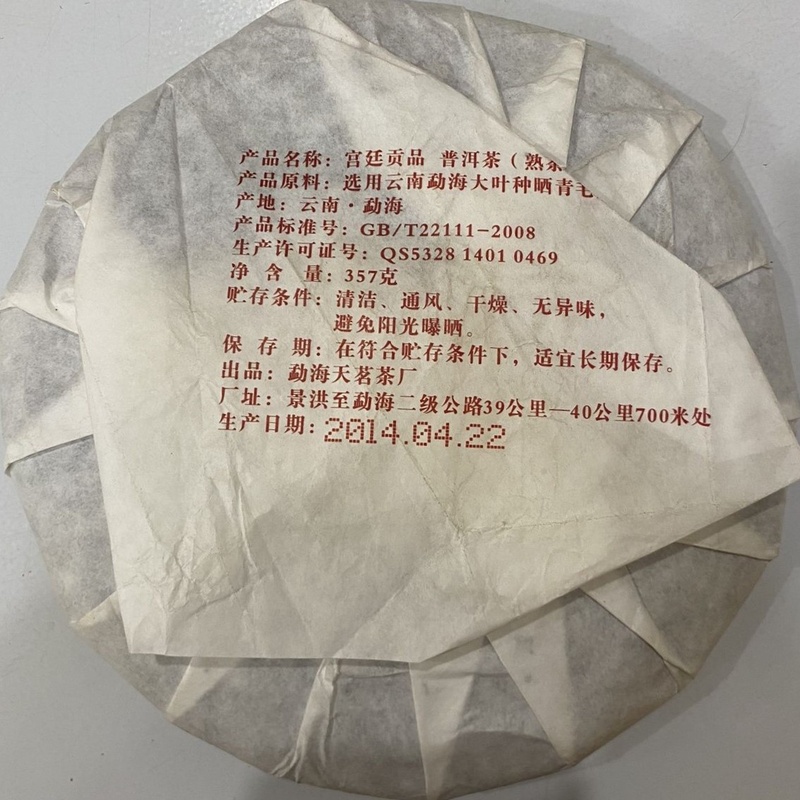 产品名称：宫廷贡品 普洱茶（熟茶
产品原料：选用云南勐海大叶种晒青毛
产地：云南·勐海
产品标准号：GB/T22111-2008
生产许可证号：QS5328 1401 0469
净 含 量：357克
贮存条件：清洁、通风、干燥、无异味，
避免阳光曝晒。
保 存 期：在符合贮存条件下，适宜长期保存。
出品：勐海天茗茶厂
厂址：景洪至勐海二级公路39公里—40公里700米处
生产日期：2014.04.22